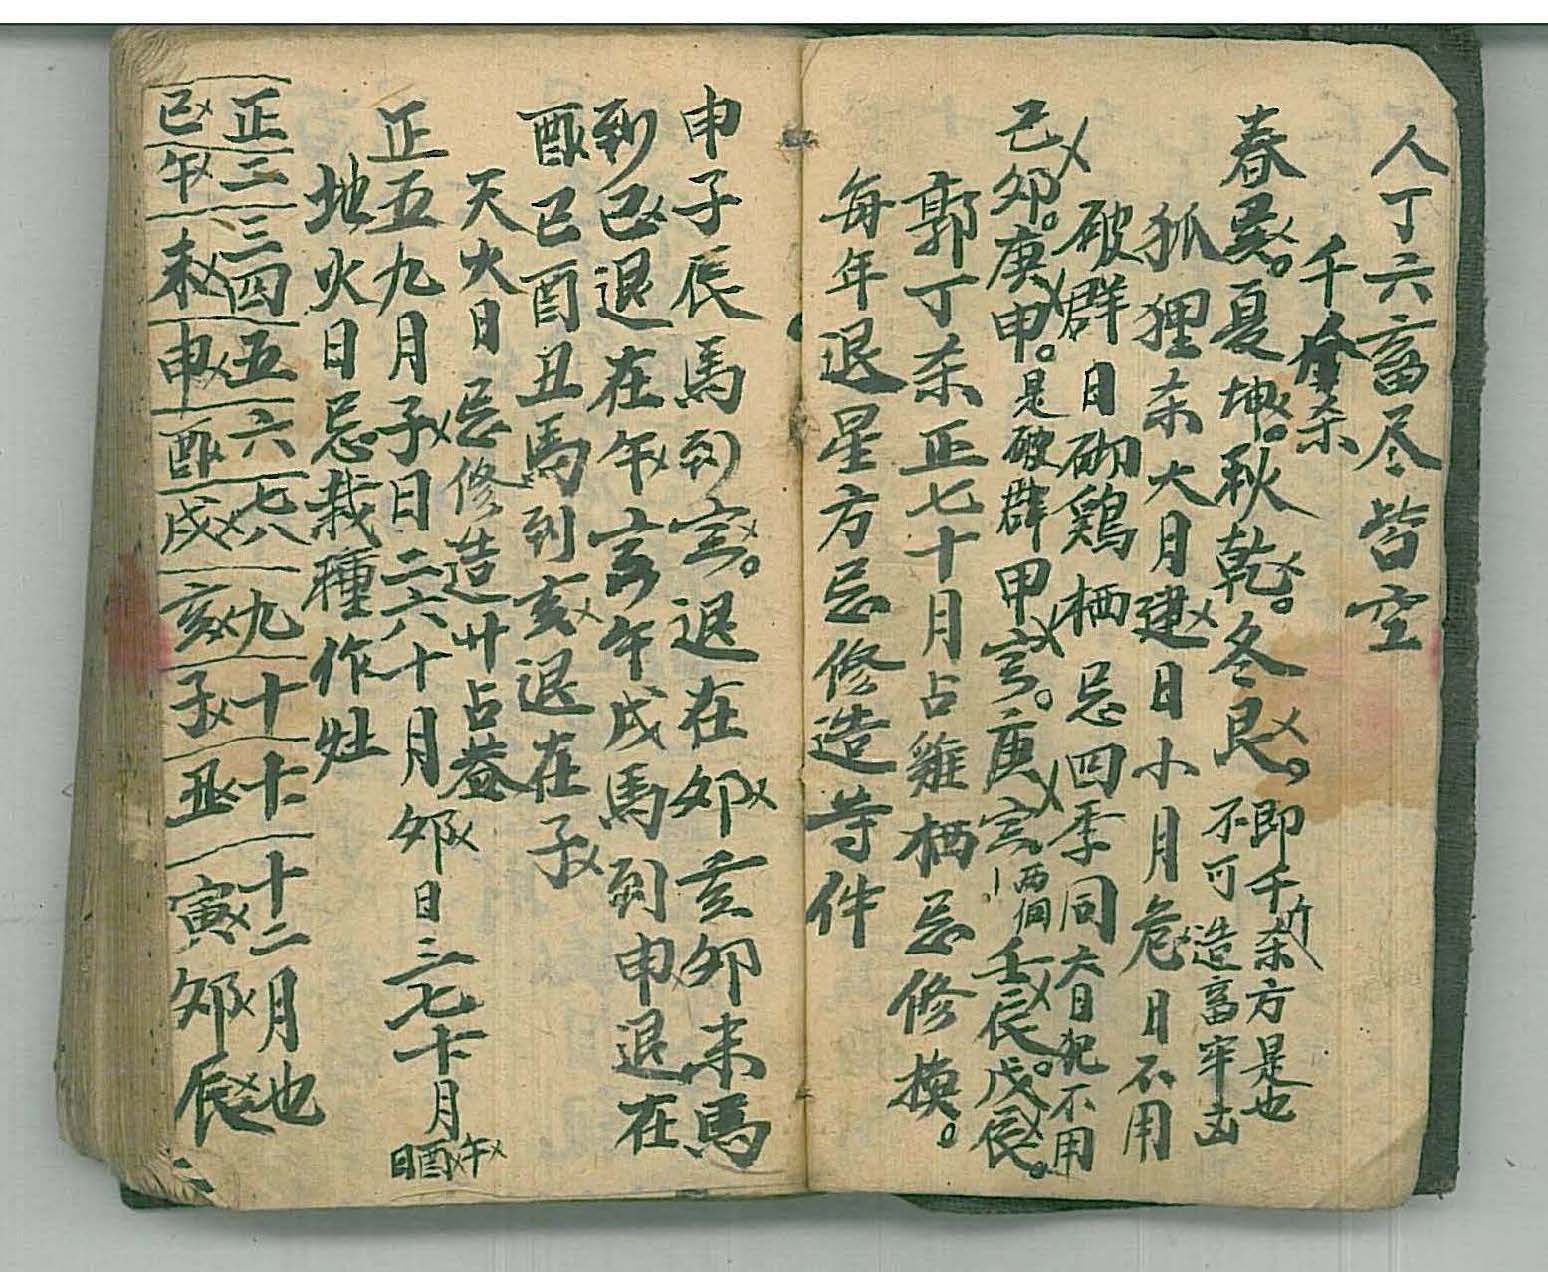 人丁六畜尽皆空
千杀
春巽。夏坤。秋乾。冬艮。即千斤杀方是也
不可造畜牢凶
狐狸杀大月建日小月危日不用
破群日砌鷄栖忌四季同大日犯不用
己卯。庚申。是破群甲寅。庚寅两個壬辰。戊辰。
郭丁杀正七十月占雞栖忌修模。
每年退星方忌修造等件
申子辰馬到寅。退在卯亥卯未馬
到巳退在午寅午戌馬到申退在
酉巳酉丑馬到亥退在子
天火日忌修造廾占蓋
正五九月子日二六十月卯日三七十一月午酉日
地火日忌栽種作灶
正二三四五六七八九十十一十二月也
巳午未申酉戌亥子丑寅卯辰